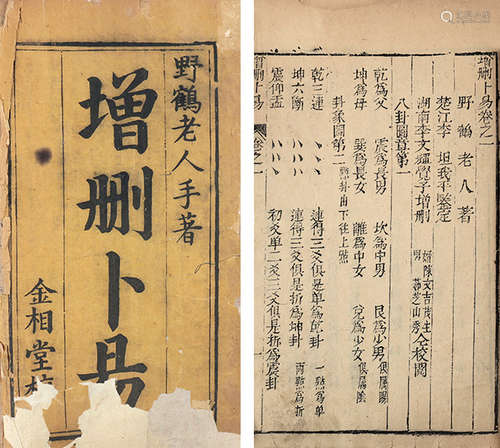 野鶴老人手著
增删卜易
金相堂梓
增刪卜易卷之一
野鶴老人著
楚江李坦我平鑒定
湖南李文輝覺子增刪
婿陳文吉茂生
男茹芝山秀
仝校閱
八卦圖章第一
乾為父 震為長男 坎為中男 艮為少男 俱屬陽
坤為母 巽為長女 離為中女 兌為少女 俱屬陰
卦象圖第二 點卦由下往上點
乾三連 、、、 連得三爻俱是单為乾卦 一點為单
坤六斷 連得三爻俱是折為坤卦 兩點為折
震仰盂 初爻单二爻三爻俱是折為震卦
增刪卜易
卷之一